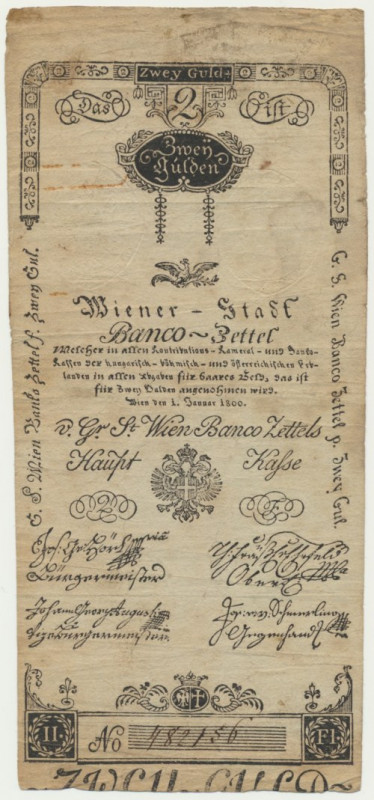 Zwey Guld
Das 2 ist
Zwey
Gulden
Wiener - Stadt
Banco ~ Zettel
Welcher in allen Kontributions - Kameral - und Banko-
Kassen der hungarisch - böhmisch - und österreichischen Erb-
landen in allen Abgaben für baares Geld, das ist
für Zwey Gulden angenohmen wird.
Wien den 1. Januar 1800.
v. Gr St. Wien Banco Zettels
Haupt Kasse
2 F
Bürgermeister
Johann Georg Augusti
Vizebürgermeister
Gegenhand
G. S. Wien Banko Zettel p. Zwey Gul.
G. S. Wien Banco Zettel p. Zwey Gul.
II. No 482156 Fl.
ZWEY GULD